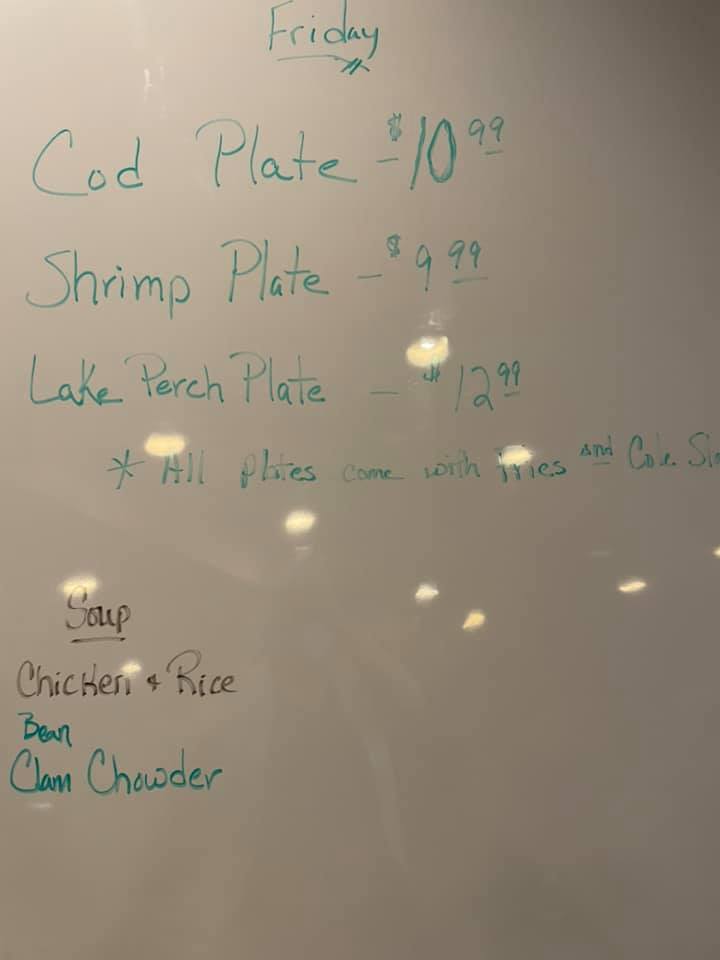 Friday
Cod Plate - $10.99
Shrimp Plate - $9.99
Lake Perch Plate - $12.99
* All plates come with fries and Cole Sla
Soup
Chicken & Rice
Bean
Clam Chowder